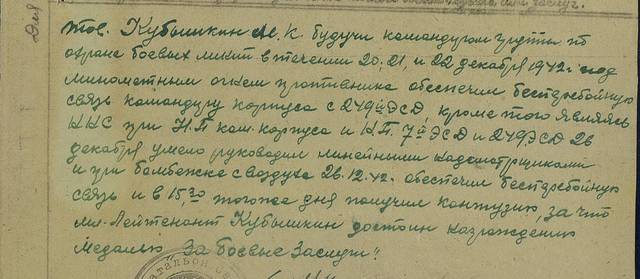 Для
Тов. Кубышкин М.К. будучи командиром группы по
охране боевых линий в течении 20, 21, и 22 декабря 1942 г под
минометным огнем противника обеспечил бесперебойную
связь командиру корпуса с 249й ЭСД, кроме того являясь
ННС при НП ком. корпуса и НП. 7й ЭСД и 249 ЭСД 26
декабря умело руководил линейными надсмотрщиками
и при бомбежке с воздуха 26.12.42. обеспечил бесперебойную
связь и в 15,30 того же дня получил контузию, за что
мл. Лейтенант Кубышкин достоин награждению
медалью „За боевые Заслуги".